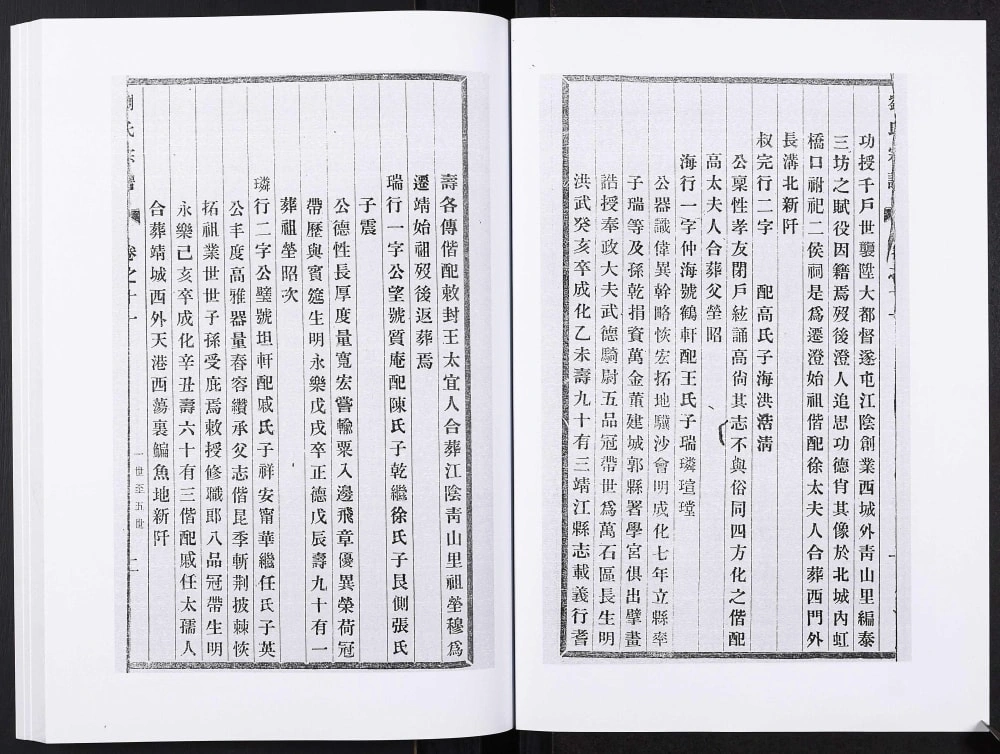 功授千戶世襲陞大都督遂屯江陰創業西城外靑山里編泰
三坊之賦役因籍焉歿後澄人追思功德肖其像於北城內虹
橋口祔祀二侯祠是爲遷澄始祖偕配徐太夫人合葬西門外
長溝北新阡
叔完行二字 配高氏子海洪浩淸
公稟性孝友閉戶絃誦高尙其志不與俗同四方化之偕配
高太夫人合葬父塋昭
海行一字仲海號鶴軒配王氏子瑞璘瑄瑝
公器識偉異幹略恢宏拓地驥沙會明成化七年立縣率
子瑞等及孫乾捐資萬金董建城郭縣署學宮俱出擘畫
誥授奉政大夫武德騎尉五品冠帶世爲萬石區長生明
洪武癸亥卒成化乙未壽九十有三靖江縣志載義行耆
劉氏宗譜 卷之十一
壽各傳偕配敕封王太宜人合葬江陰靑山里祖塋穆爲
遷靖始祖歿後返葬焉
瑞行一字公望號質庵配陳氏子乾繼徐氏子艮側張氏
子震
公德性長厚度量寬宏嘗輸粟入邊飛章優異榮荷冠
帶歷與賓筵生明永樂戊戌卒正德戊辰壽九十有一
葬祖塋昭次
璘行二字公璧號坦軒配戚氏子祥安甯華繼任氏子英
公丰度高雅器量舂容纘承父志偕昆季斬荆披棘恢
拓祖業世世子孫受庇焉敕授修職郎八品冠帶生明
永樂己亥卒成化辛丑壽六十有三偕配戚任太孺人
合葬靖城西外天港西蕩裏鯿魚地新阡
一世至五世 二